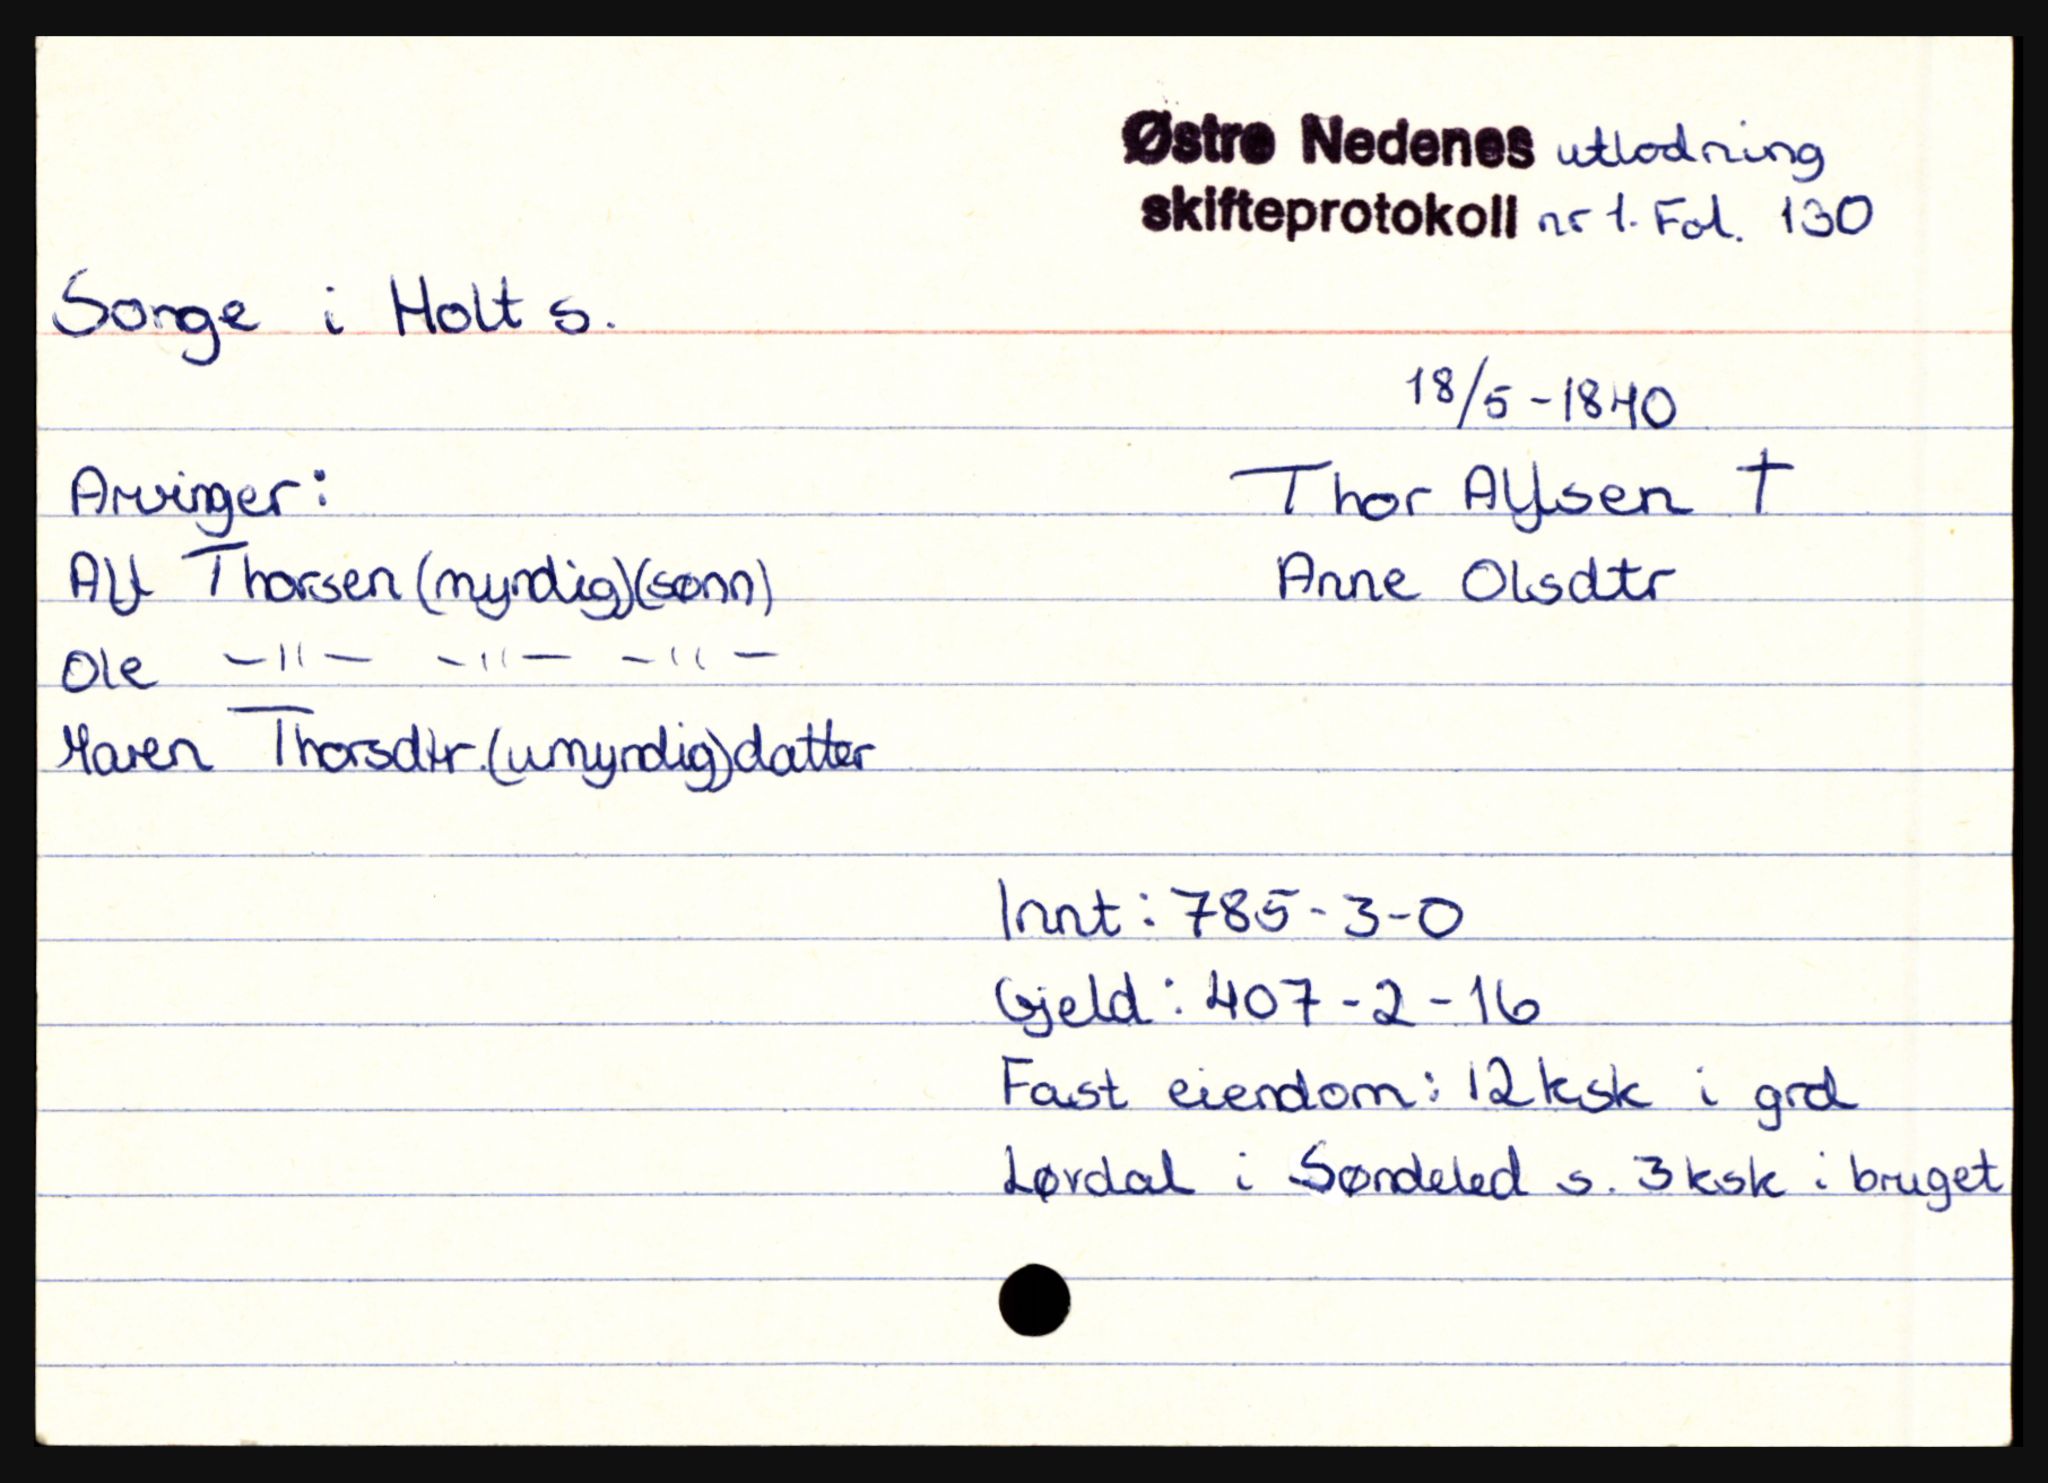 Østre Nedenes utlodning
skifteprotokoll nr 1. Fol. 130
Songe i Holt s.
18/5 - 1840
Arvinger: Thor Alfsen †
Alf Thorsen (myndig)(sønn) Anne Olsdtr
Ole -"- -"- -"-
Maren Thorsdtr. (umyndig) datter
Innt: 785-3-0
Gjeld: 407-2-16
Fast eiendom: 12 ksk i grd
Lørdal i Søndeled s. 3 ksk i bruget